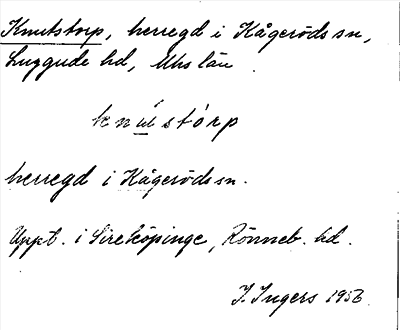 Knutstorp, herregd i Kågeröds sn,
Luggude hd, Mhs län
knústórp
herregd i Kågeröds sn.
Uppt. i Sireköpinge, Rönneb. hd.
I. Ingers 1956.